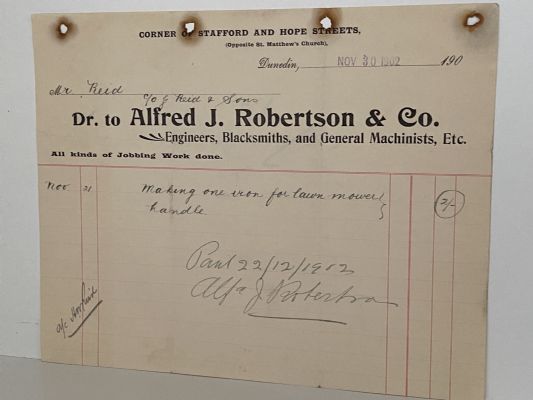 CORNER OF STAFFORD AND HOPE STREETS,
(Opposite St. Matthew's Church),
Dunedin, NOV 30 1902 190
Mr. Reid
c/o J Reid & Sons
Dr. to Alfred J. Robertson & Co.
Engineers, Blacksmiths, and General Machinists, Etc.
All kinds of Jobbing Work done.
Nov 21 Making one iron for lawn mower 2/-
handle
Paid 22/12/1902
Alfd J. Robertson
a/c